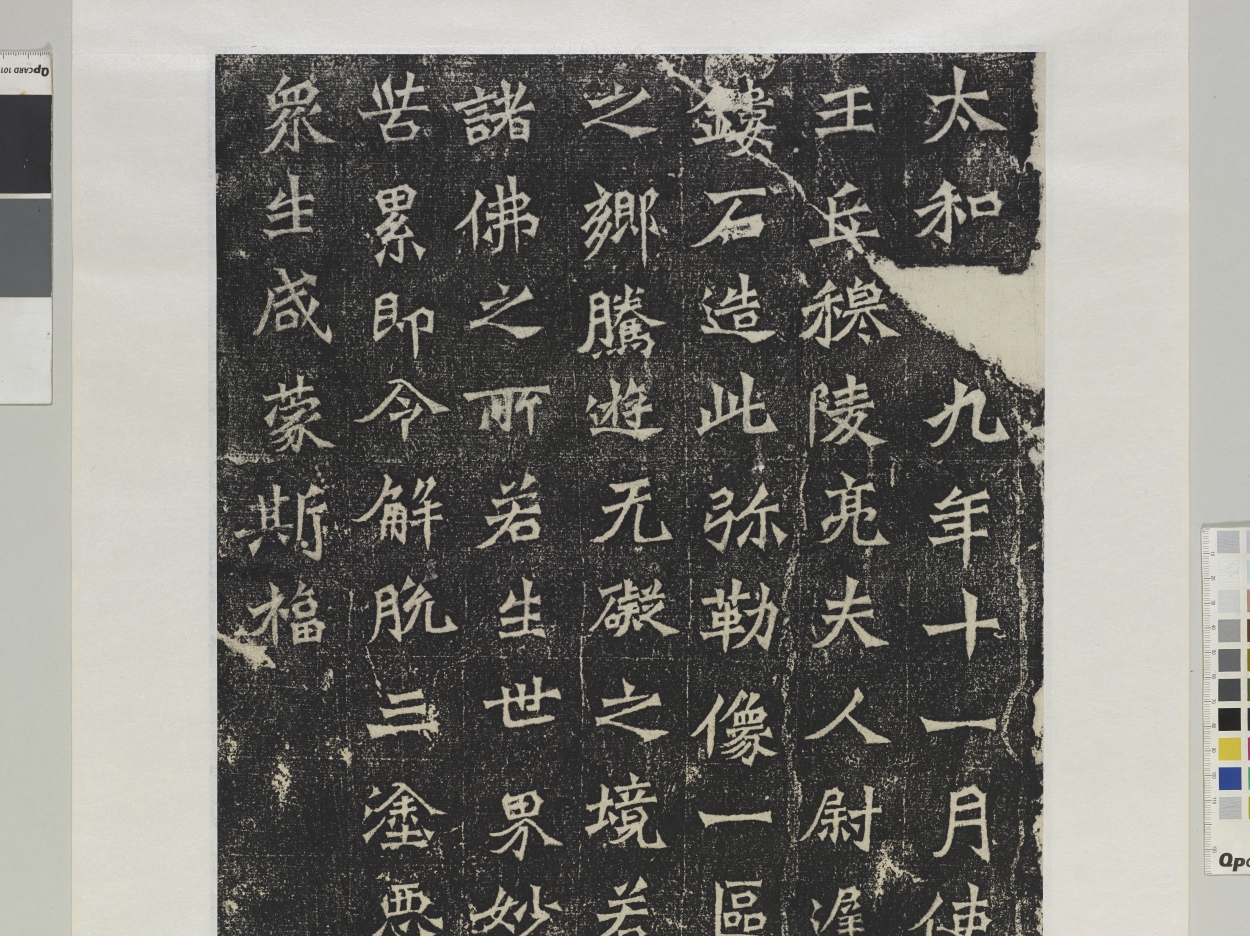 太和九年十一月使
王丘穆陵亮夫人尉遲
鏤石造此弥勒像一區
之鄉騰遊无礙之境若
諸佛之所若生世界妙
苦累即令解脱三塗惡
眾生咸蒙斯福
QpCARD 101